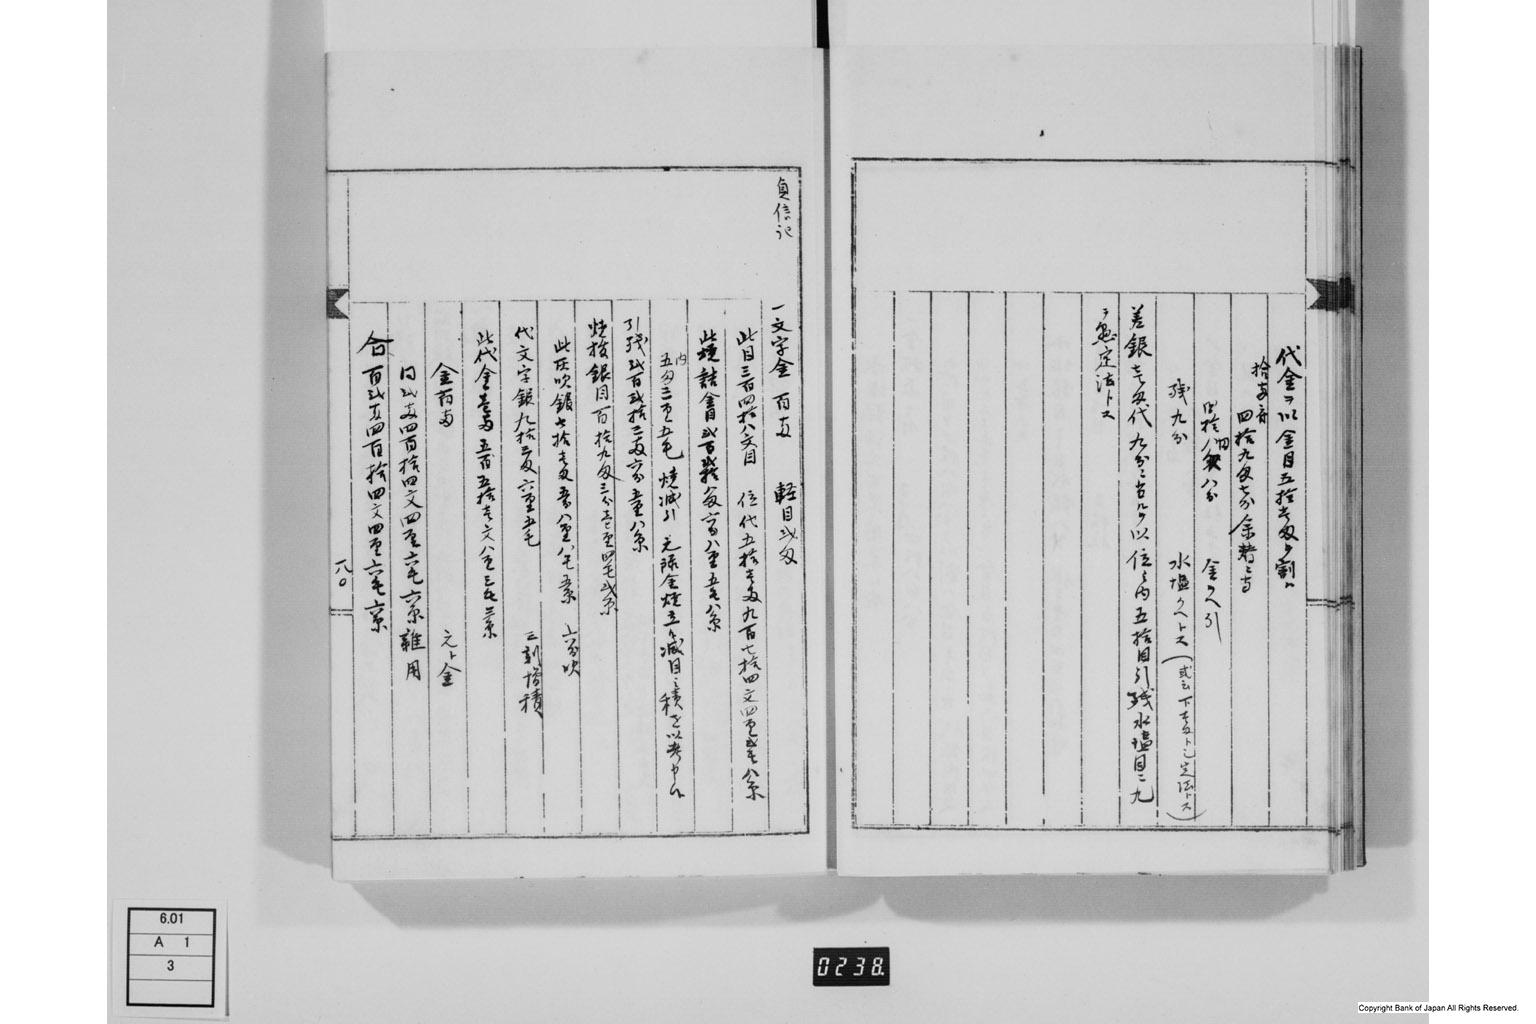 代金ヲ以金目五拾壱匁ゟ割ハ
拾五斉
四拾九匁七分余替ニ当
内拾八匁八分 金クヘ引
残九分 水塩クヘトス(或云下壱匁トモ定法トス)
差銀壱匁代九分ニ当ル以位之内五拾目引残水塩目ニ九
ヲ悬定法トス
貞信記
一文字金 百両 軽目弐匁
此目三百四拾八文目 位代五拾壱匁九百七拾四文四厘弐毛八糸
此焼詰金目弐百弐拾八匁八厘五毛八糸
内五匁三厘五毛 焼減引 元除金焼立減目之積を以考申候
引残弐百弐拾三匁六分五厘八糸
焼抜銀目百拾九匁三分壱厘四毛弐糸
此灰吹銀七拾壱匁五分八厘八毛五糸 六分吹
代文字銀九拾三匁六厘五毛 三割増積
此代金壱両五百五拾壱文八厘三毛三糸
金百両 元ト金
同弐両四百拾四文四厘六毛六糸雑用
合百弐両四百拾四文四厘六毛六糸
八〇
6.01
A 1
3
0238.
Copyright Bank of Japan All Rights Reserved.